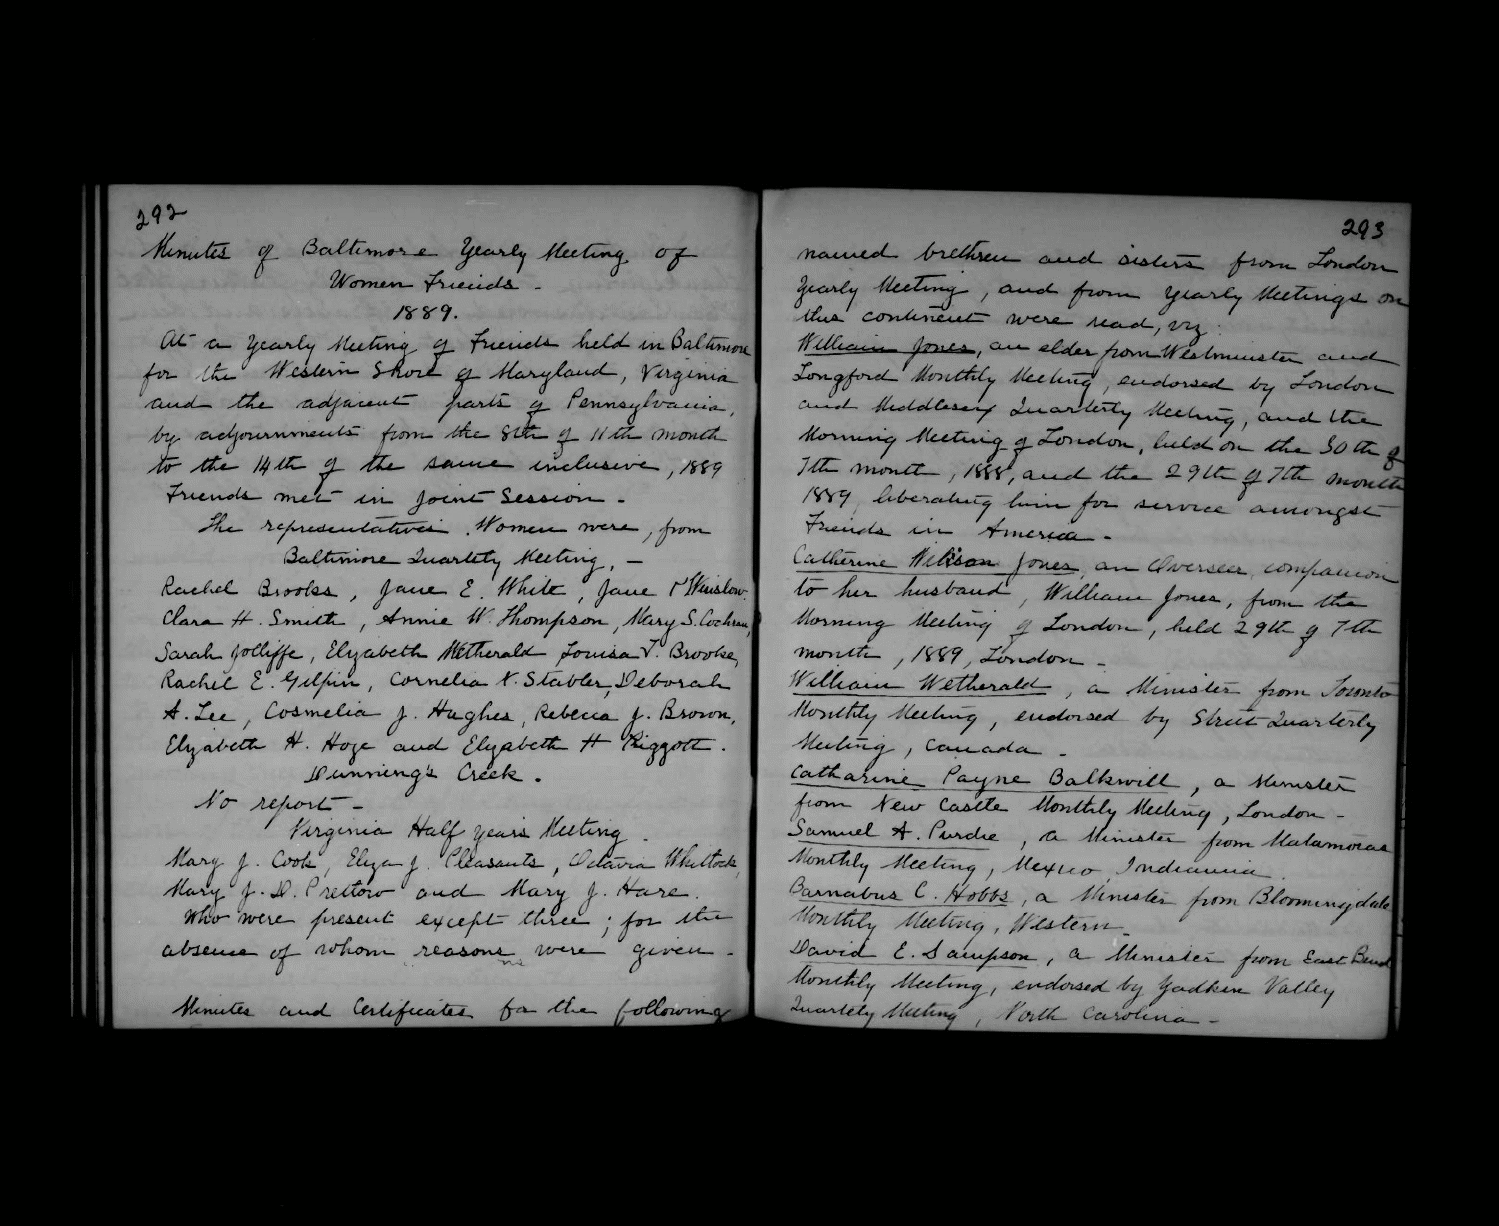 292
Minutes of Baltimore Yearly Meeting of
Women Friends -
1889.
At a Yearly Meeting of Friends held in Baltimore
for the Western Shore of Maryland, Virginia
and the adjacent parts of Pennsylvania,
by adjournments from the 8th of 11th month
to the 14th of the same inclusive, 1889
Friends met in Joint Session -
The representatives. Women were, from
Baltimore Quartely Meeting, -
Rachel Brooks, Jane E. White, Jane Winslow.
Clara H. Smith, Annie W. Thompson, Mary S. Cochran,
Sarah Jolliffe, Elizabeth Louisa T. Brooke,
Rachel E. Gilpin, Cornelia N. Stabler, Deborah
A. Lee, Cosmelia J. Hughes, Rebecca J. Brown,
Elizabeth H. Hoge and Elizabeth H Piggott.
Dunning's Creek.
No report -
Virginia Half year's Meeting.
Mary J. Cook, Eliza J. Pleasants, Octavia Whitlock,
Mary J. D. Pretlow and Mary J. Hare.
Who were present except three; for the
absence of whom reasons were given -
Minutes and Certificates for the following
293
named brethren and sisters from London
Yearly Meeting, and from Yearly Meetings on
this continent were read, viz.
William Jones, an elder from Westminster and
Longford Monthly Meeting, endorsed by London
and Middlesex Quarterly Meeting, and the
Morning Meeting of London, held on the 30th of
7th month, 1888, and the 29th of 7th month
1889, liberating him for service amongst
Friends in America -
Catherine Jones, an Overseer, companion
to her husband, William Jones, from the
Morning Meeting of London, held 29th of 7th
month, 1889, London -
William Wetherald, a Minister from Toronto
Monthly Meeting, endorsed by Street Quarterly
Meeting, Canada -
Catharine Payne Balkwill, a Minister
from New Castle Monthly Meeting, London -
Samuel A. Purdie, a Minister from Matamoras
Monthly Meeting, Mexico, Indianna.
Barnabus C. Hobbs, a Minister from Bloomingdale
Monthly Meeting, Western -
David E. Sampson, a Minister from East Bend
Monthly Meeting, endorsed by Yadken Valley
Quartely Meeting, North Carolina -